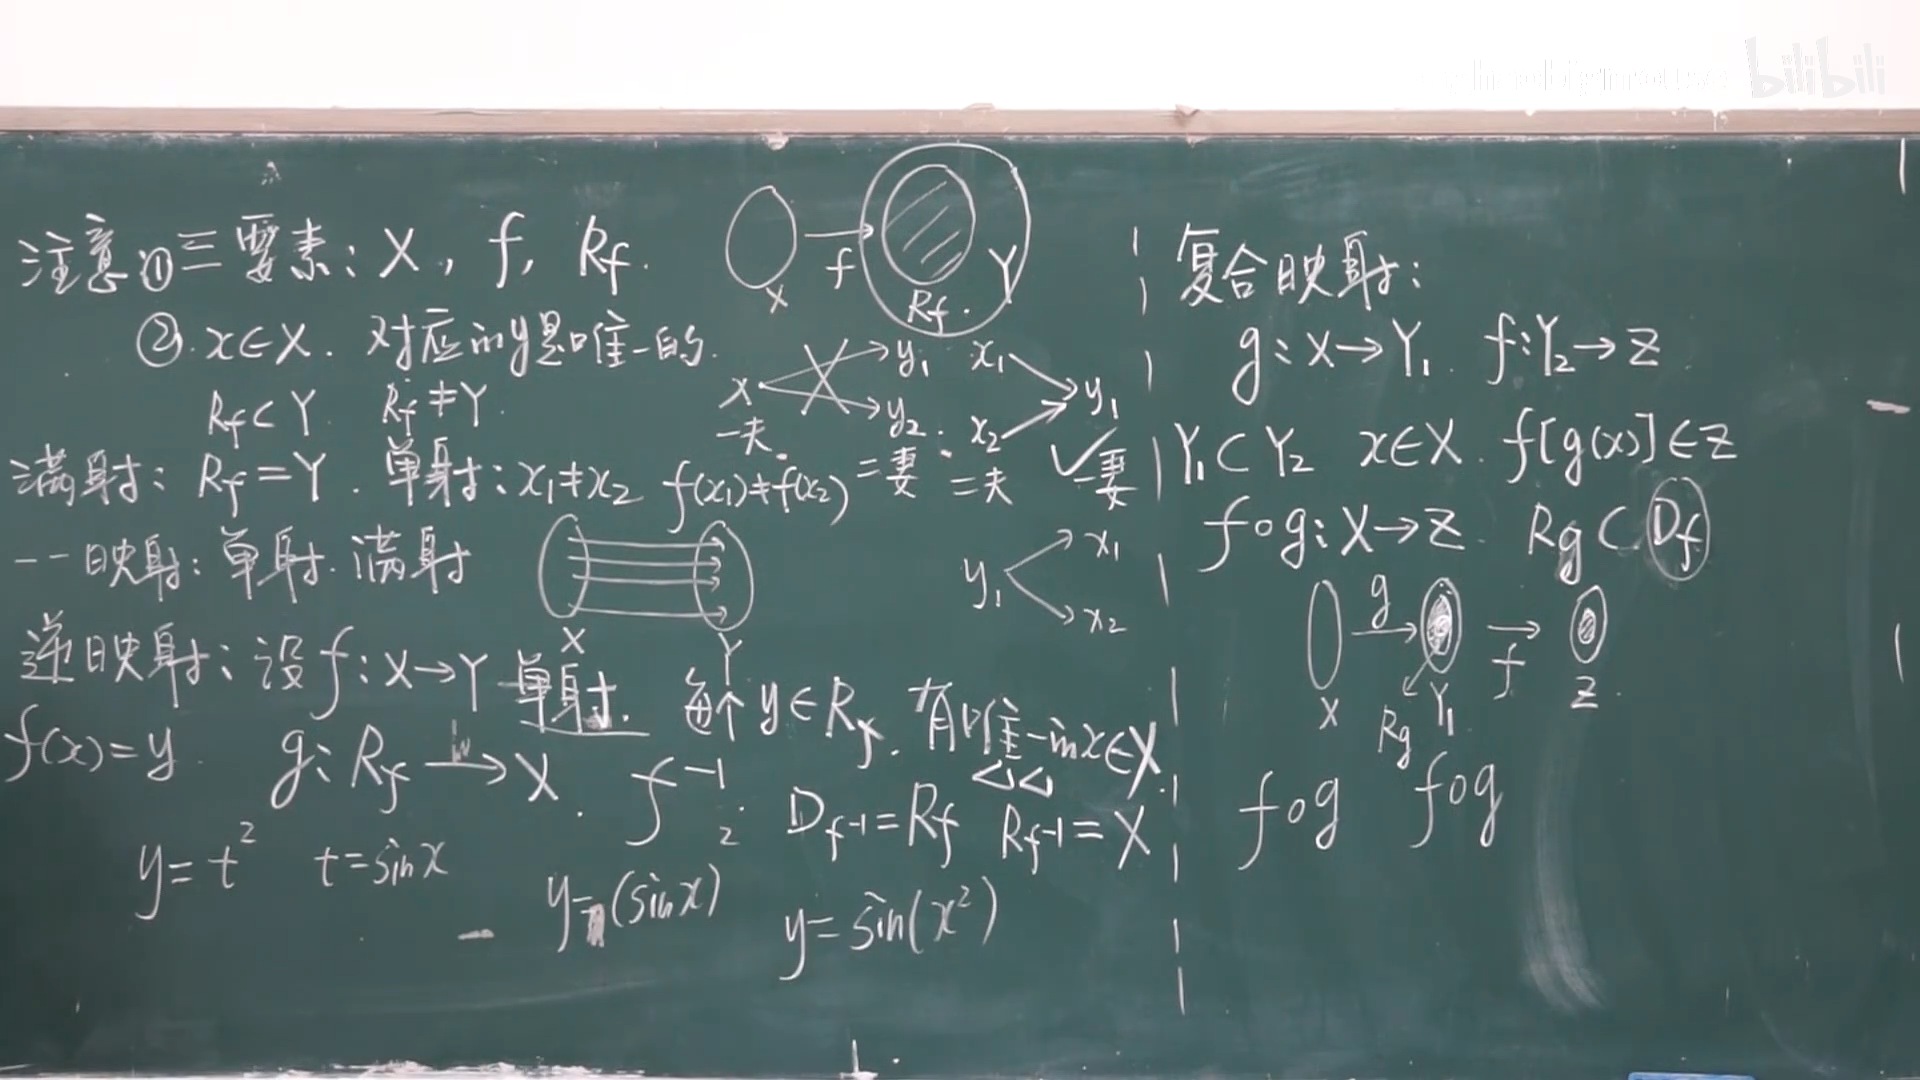 bilibili
注意:①三要素: X, f, Rf.
X f Rf. Y
②. x∈X. 对应的y是唯一的.
x y₁ y₂ x₁ x₂ y₁
Rf⊂Y Rf≠Y.
一夫. 二妻. 二夫 ✓一妻
满射: Rf=Y. 单射: x₁≠x₂ f(x₁)≠f(x₂)
一一映射: 单射. 满射
X Y
y₁ x₁ x₂
逆映射: 设f: X→Y 单射. 每个y∈Rf. 有唯一的x∈X.
f(x)=y. g: Rf→X. f⁻¹. D_f⁻¹=Rf R_f⁻¹=X
y=t² t=sinx y=(sinx)² y=sin(x²)
复合映射:
g: X→Y₁ f: Y₂→Z
Y₁⊂Y₂ x∈X. f[g(x)]∈Z
f∘g: X→Z Rg⊂Df
g f
X Rg Y₁ Z.
f∘g f∘g